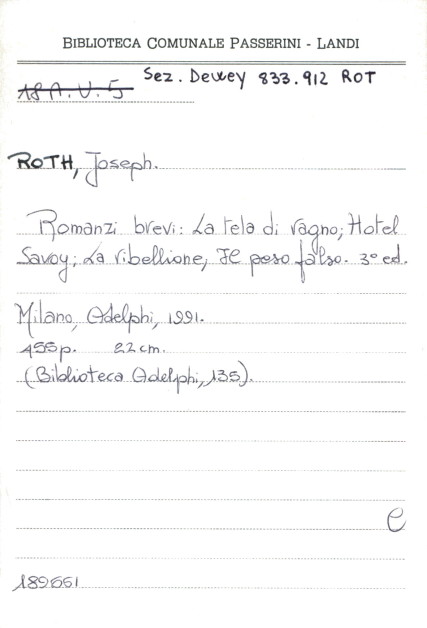 BIBLIOTECA COMUNALE PASSERINI - LANDI
18 A. V. 5 Sez. Dewey 833.912 ROT
ROTH, Joseph.
Romanzi brevi: La tela di ragno; Hotel
Savoy; La ribellione; Il peso falso. 3° ed.
Milano, Adelphi, 1991.
455 p. 22 cm.
(Biblioteca Adelphi, 135).
e
189661